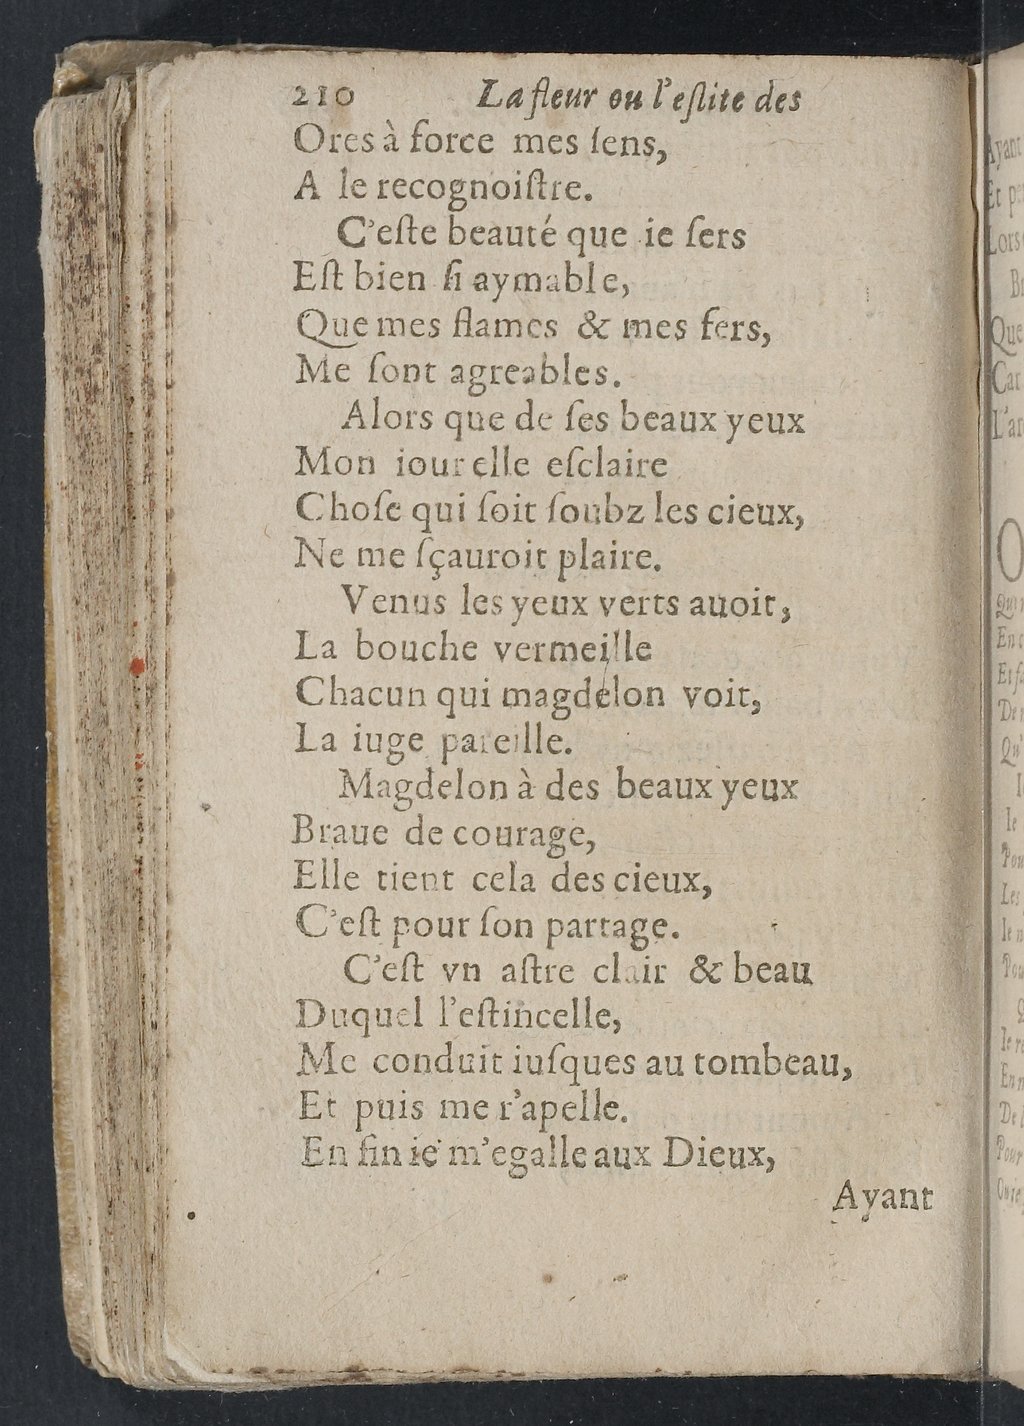 210 La fleur ou l'eſlite des
Ores à force mes ſens,
A le recognoiſtre.
C'eſte beauté que ie ſers
Eſt bien ſi aymable,
Que mes flames & mes fers,
Me ſont agreables.
Alors que de ſes beaux yeux
Mon iour elle eſclaire
Choſe qui ſoit ſoubz les cieux,
Ne me ſçauroit plaire.
Venus les yeux verts auoit,
La bouche vermeille
Chacun qui magdelon voit,
La iuge pareille.
Magdelon à des beaux yeux
Braue de courage,
Elle tient cela des cieux,
C'eſt pour ſon partage.
C'eſt vn aſtre clair & beau
Duquel l'eſtincelle,
Me conduit iuſques au tombeau,
Et puis me r'apelle.
En fin ie m'egalle aux Dieux,
Ayant